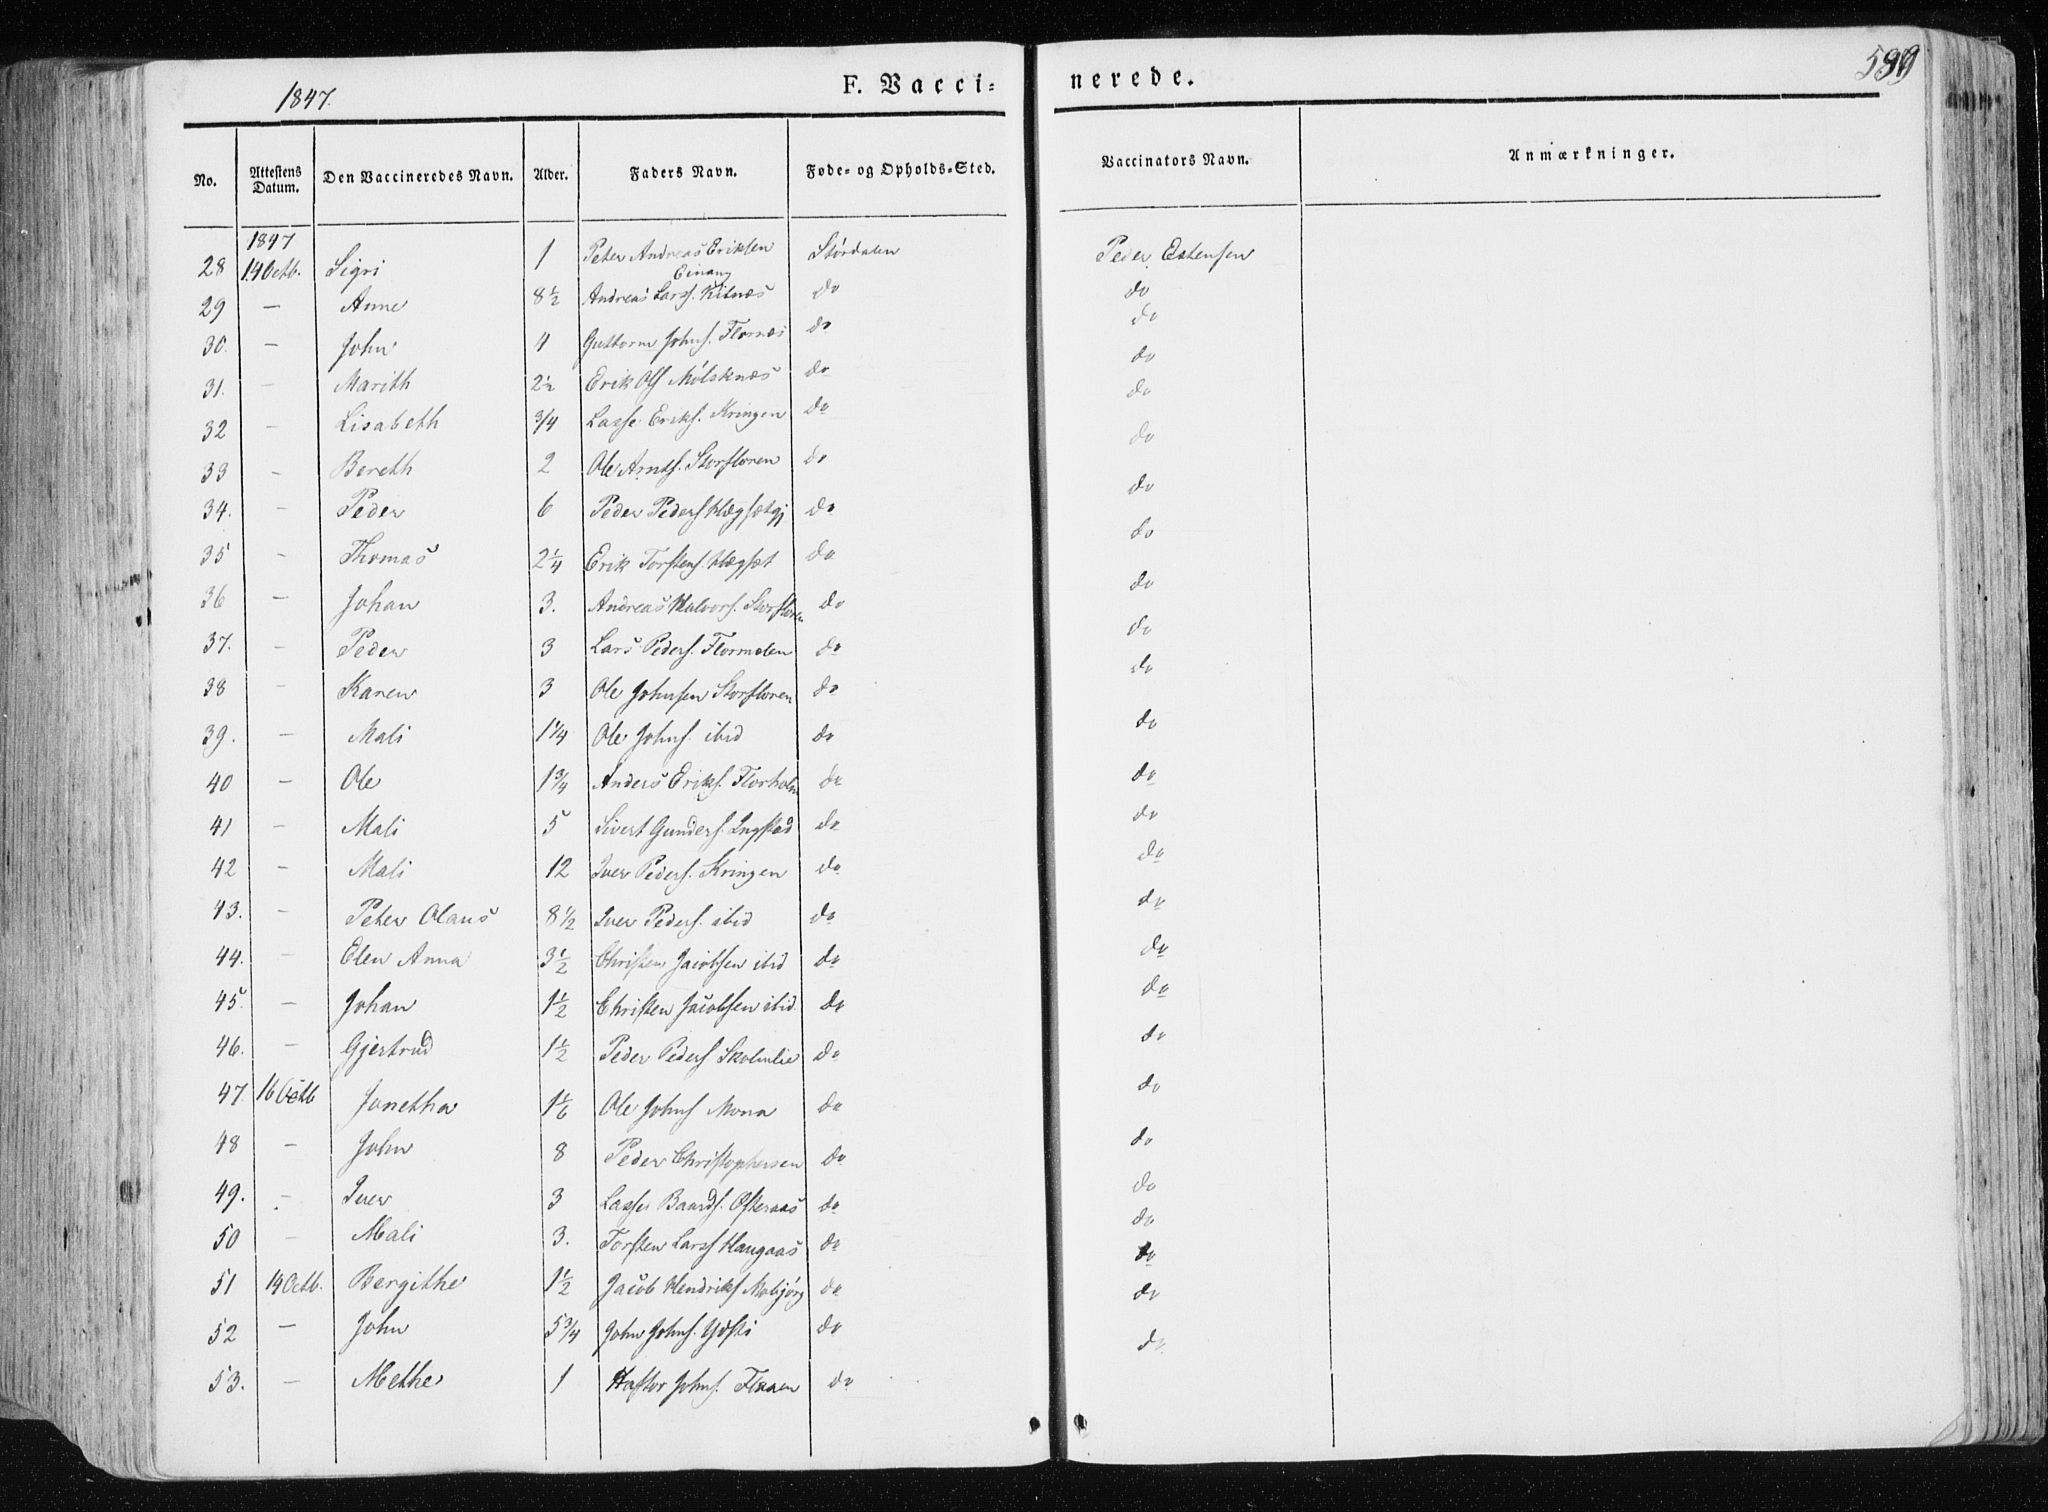 1847.
F. Vacci=
nerede.
No.
Attestens Datum.
Den Vaccineredes Navn.
Alder.
Faders Navn.
Føde= og Opholds=Sted.
Vaccinators Navn.
Anmærkninger.
1847
28 14 Octb. Sigri 1 Peter Andreas Eriksen Einang Stördalen Peder Estensen
29 — Anne 8½ Andreas Larss. do do
30. — John 4 Guttorm Johns. Flornæs do do
31. - Marith 2½ Erik Ols Mölsknæs do do
32 - Lisabeth 3/4 Lasse Eriks. Kringen do do
33 - Bereth 2 Ole Arnts. Storfloren do do
34. - Peder 6 Peder Peders do do
35 - Thomas 2¼ Erik Torstens. Hægset do do
36 — Johan 3. Andreas Halvors. Storfloren do do
37. - Peder 3 Lars Peders. Flormoen do do
38 - Karen 3 Ole Johnsen Storfloren do do
39. - Mali 1¼ Ole Johns. ibid do do
40 - Ole 1¾ Anders Eriks. Florholm do do
41 - Mali 5 Sivert Gunders. Ingstad do do
42 - Mali 12 Iver Peders. Kringen do do
43. - Peter Olaus 8½ Iver Peders. ibid do do
44. - Elen Anna 3½ Christen Jacobsen ibid do do
45. - Johan 1½ Christen Jacobsen ibid. do do
46. — Gjertrud 1½ Peder Peders Skolmlie do do
47. 16 Octb Jonetha 1⅙ Ole Johns Mona do do
48 - John 8 Peder Christophersen do do
49. - Iver 3 Lasse Baards. Ofteraas do do
50 - Mali 3. Torsten Larss Haugaas do do
51 14 Octb. Bergithe 1½ Jacob Hendriks. do do
52 — John 5¾ John Johns. do do
53. — Methe 1 Haftor Johns. Flaaen do do